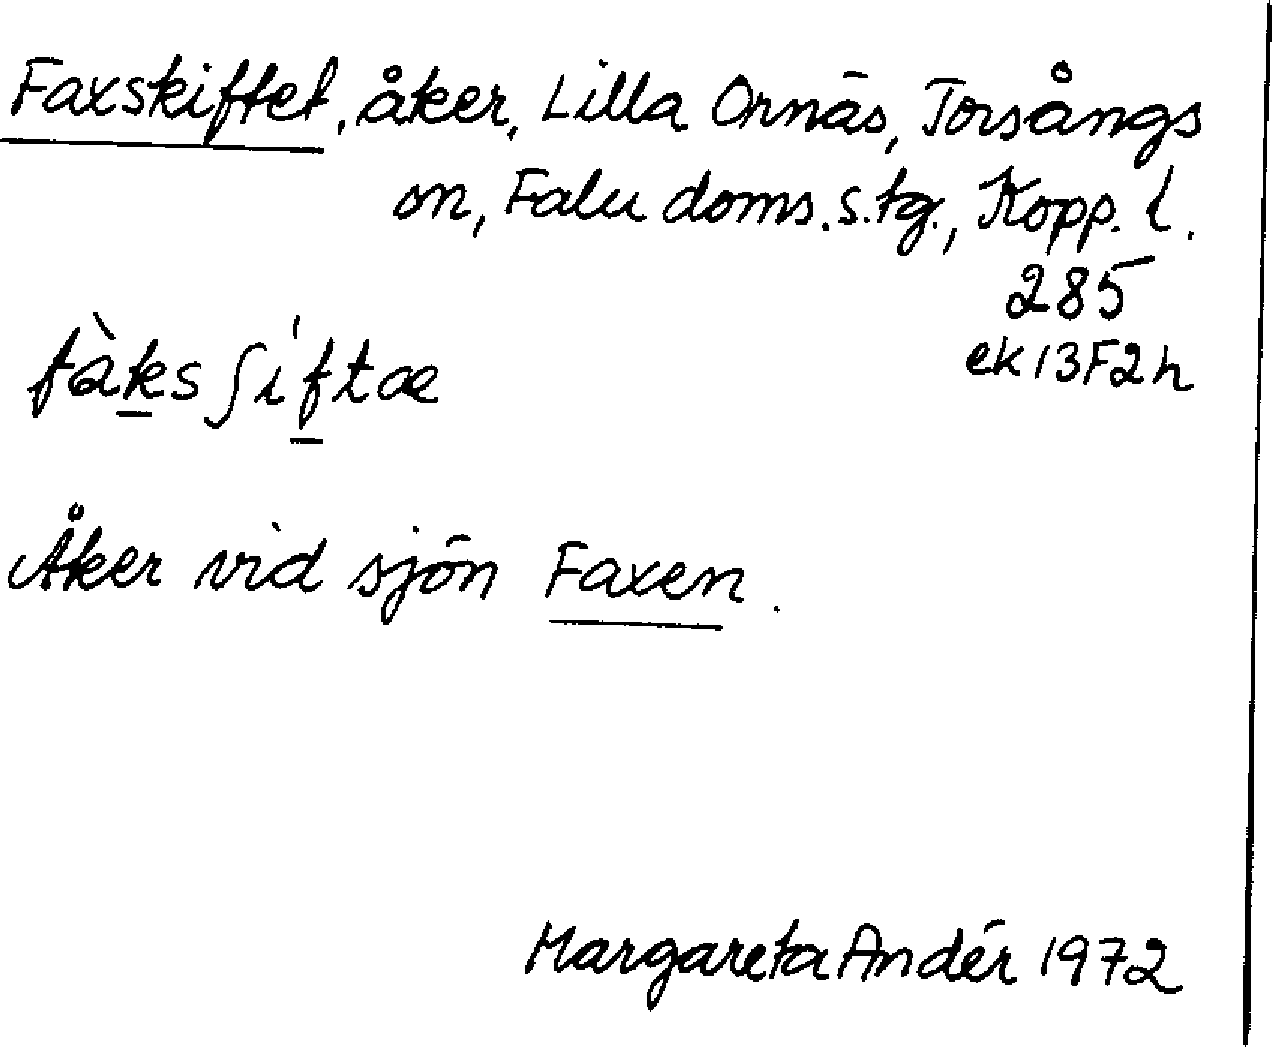 Faxskiftet, åker, Lilla Ornäs, Torsångs
sn, Falu doms.s.tg., Kopp. l.
285
ek 13F2h
fàks ʃi̍ftæ
Åker vid sjön Faxen.
Margareta Andér 1972